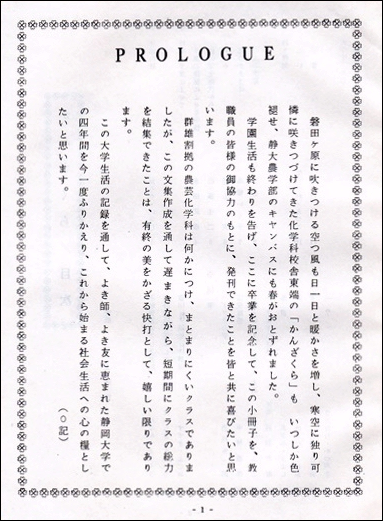 PROLOGUE
磐田ヶ原に吹きつける空っ風も日一日と暖かさを増し、寒空に独り可
憐に咲きつづけてきた化学科校舎東端の「かんざくら」も　いつしか色
褪せ、静大農学部のキャンバスにも春がおとずれました。
学園生活も終わりを告げ、ここに卒業を記念して、この小冊子を、教
職員の皆様の御協力のもとに、発刊できたことを皆と共に喜びたいと思
います。
群雄割拠の農芸化学科は何かにつけ、まとまりにくいクラスでありま
したが、この文集作成を通して遅まきながら、短期間にクラスの総力
を結集できたことは、有終の美をかざる快打として、嬉しい限りであり
ます。
この大学生活の記録を通して、よき師、よき友に恵まれた静岡大学で
の四年間を今一度ふりかえり、これから始まる社会生活への心の糧とし
たいと思います。
（○記）
- 1 -